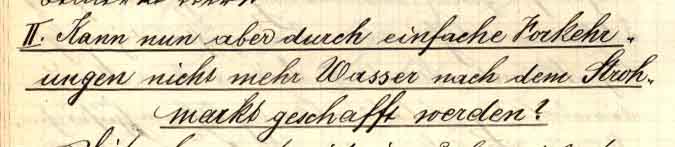 II. Kann nun aber durch einfache Vorkehr-
ungen nicht mehr Wasser nach dem Stroh-
markt geschafft werden?